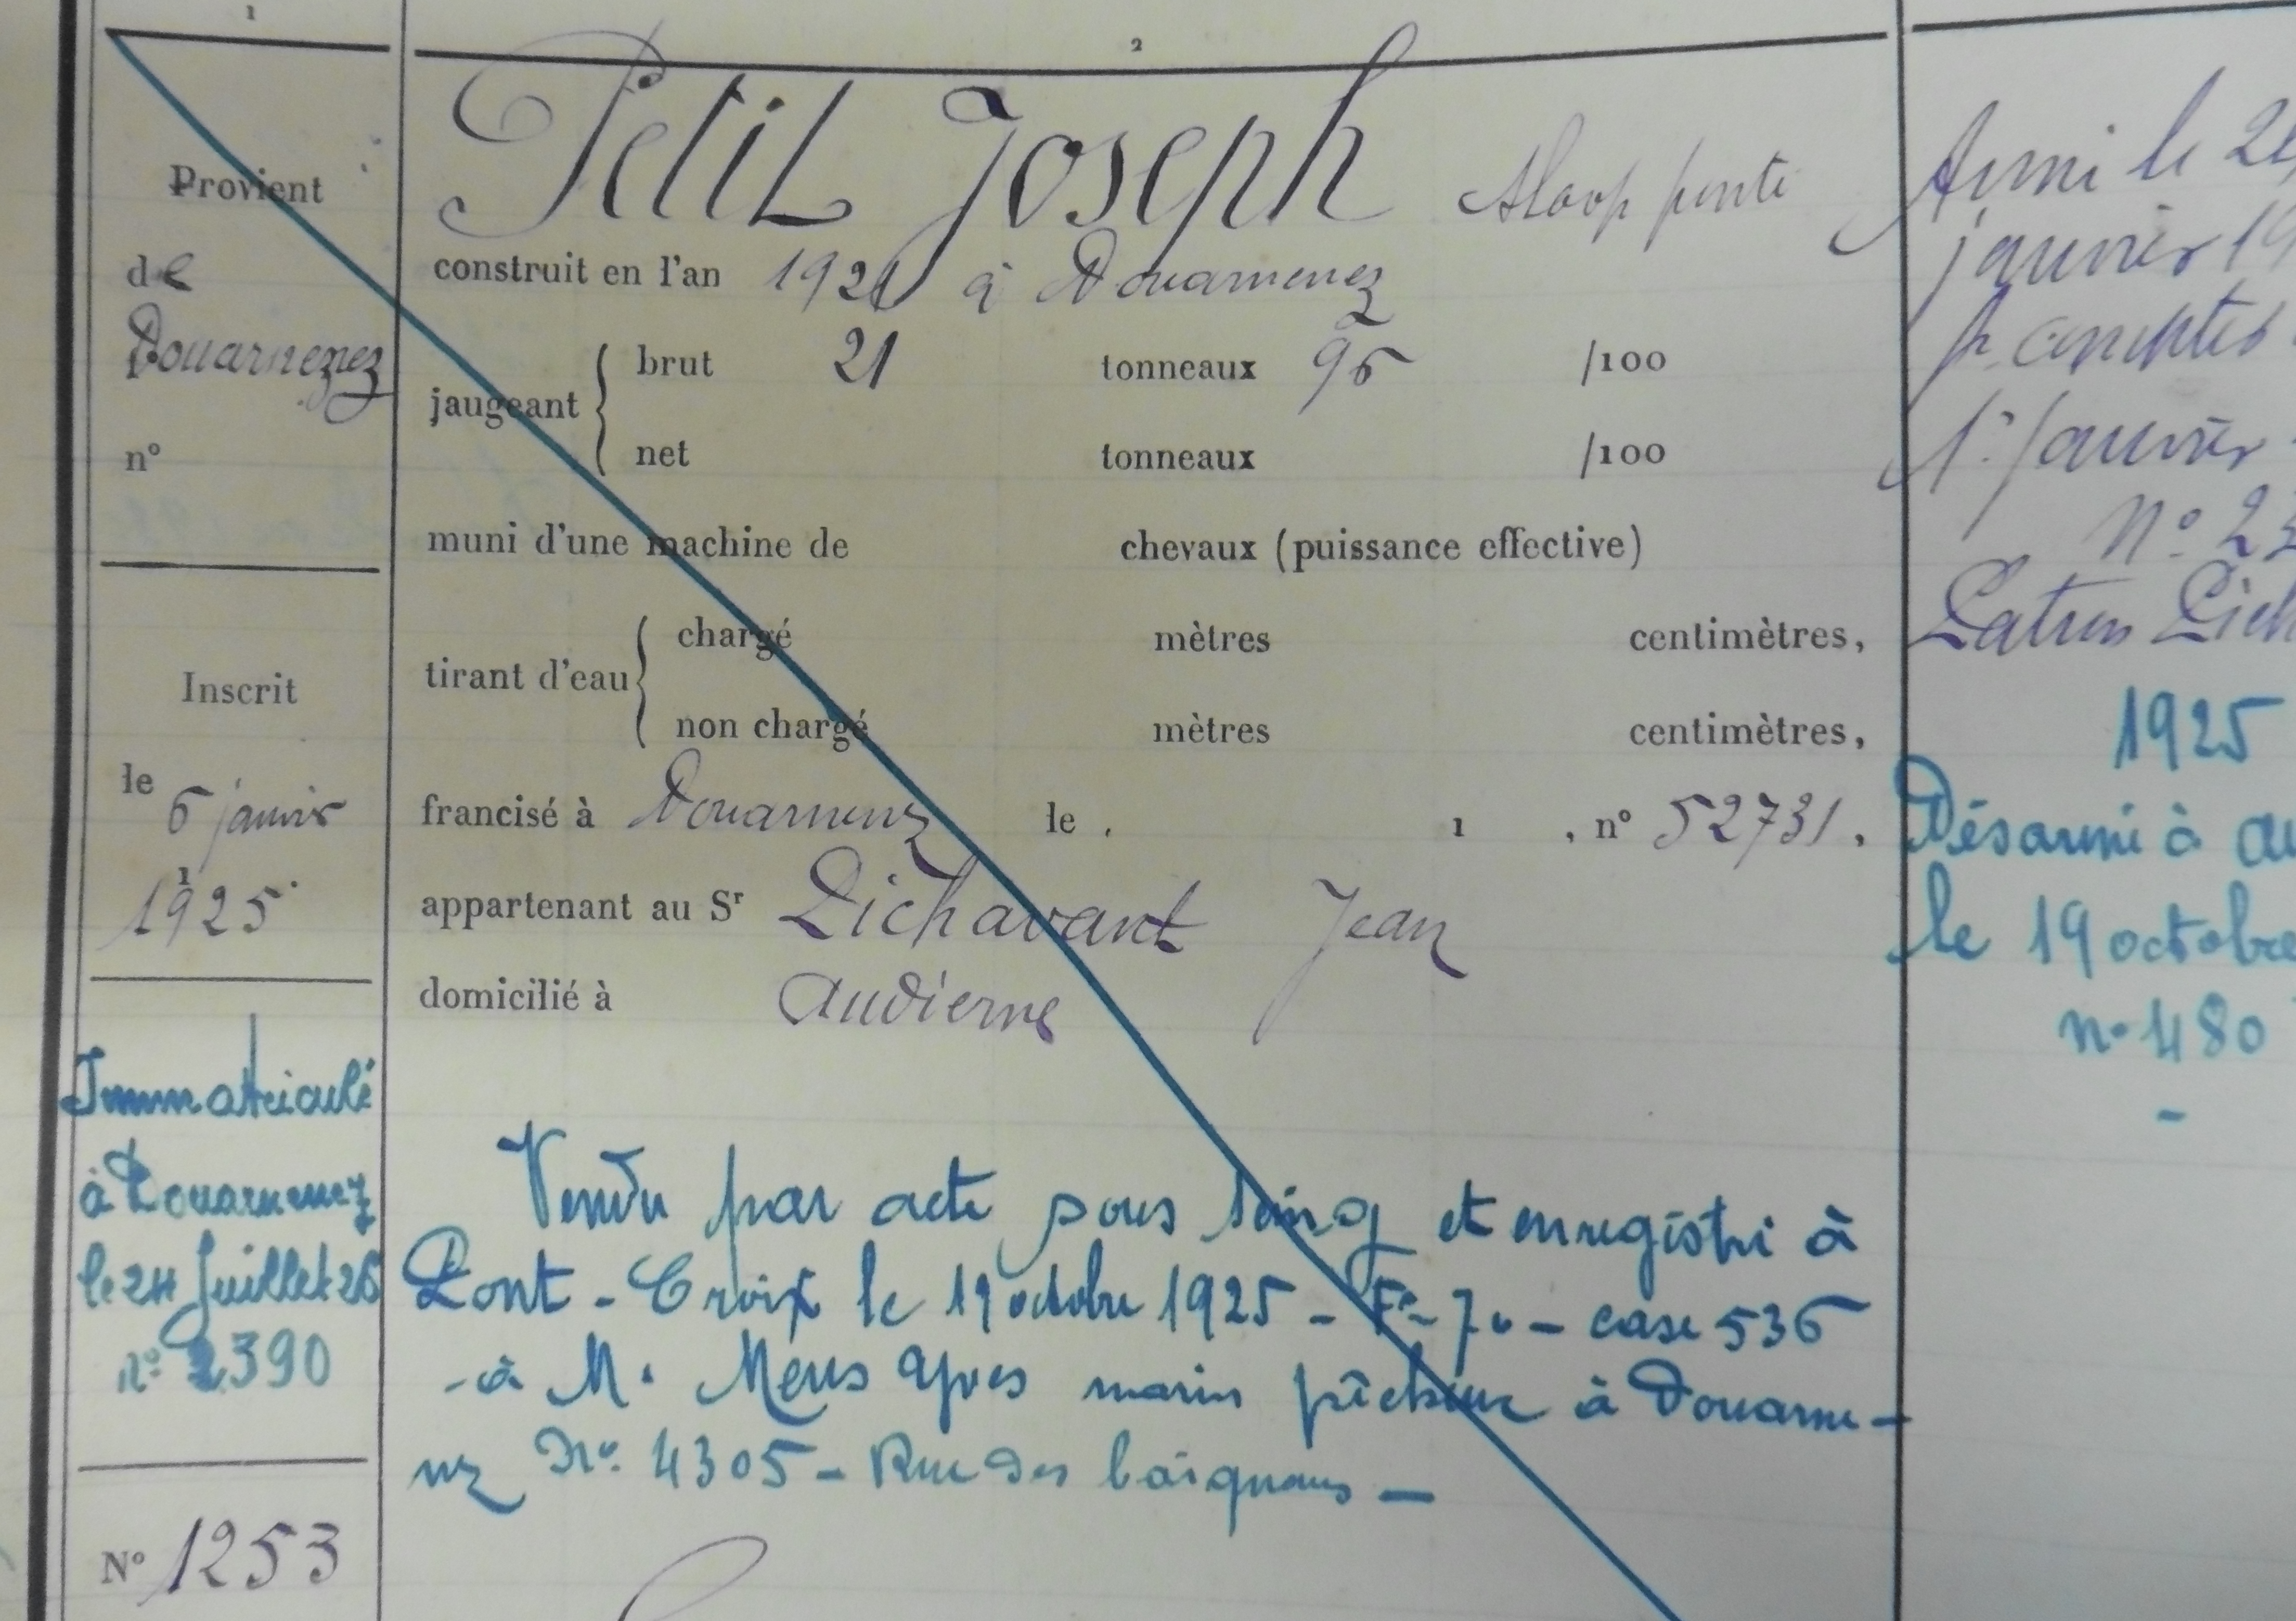 1
Provient
de
Douarnenez
n°
Inscrit
le 6 janvier
1925
Immatriculé
à Douarnenez
le 24 Juillet 26
n° 2390
N° 1253
2
Petit Joseph Sloop ponté
construit en l'an 1921 à Douarnenez
jaugeant { brut 21 tonneaux 95 /100
net tonneaux /100
muni d'une machine de chevaux (puissance effective)
tirant d'eau { chargé mètres centimètres,
non chargé mètres centimètres,
francisé à Douarnenez le 1 , n° 52731,
appartenant au Sr Lichavant Jean
domicilié à Audierne
Vendu par acte sous seing et enregistré à
Pont-Croix le 19 octobre 1925 - F° 70 - case 536
- à M. Yves marin pêcheur à Douarne-
nez N° 4305 - Rue des
Armé le
janvier 19
pr compter
1er Janvier
N° 23
Patron Lich
1925
Désarmé à Au
le 19 octobre
n° 480
-